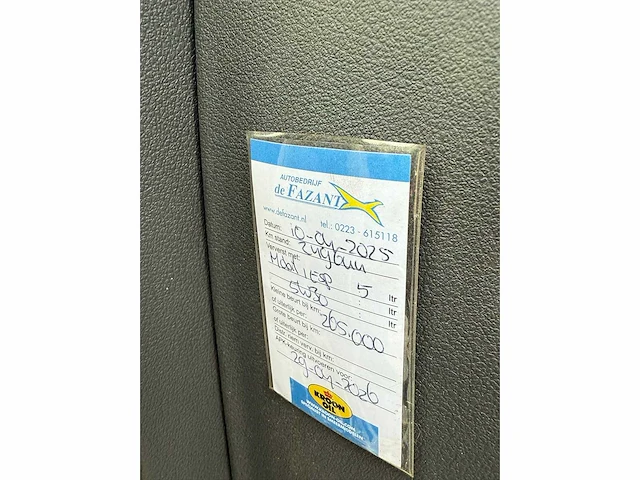 AUTOBEDRIJF
de FAZANT
www.defazant.nl tel.: 0223 - 615118
Datum: 10-04-2025
Km stand:
Ververst met:
5 ltr
5W30 : ltr
: ltr
Kleine beurt bij km: 265.000
of uiterlijk per:
Grote beurt bij km:
of uiterlijk per:
Distr. riem verv. bij km:
APK-keuring uitvoeren voor:
29-04-2026
KROON
OIL